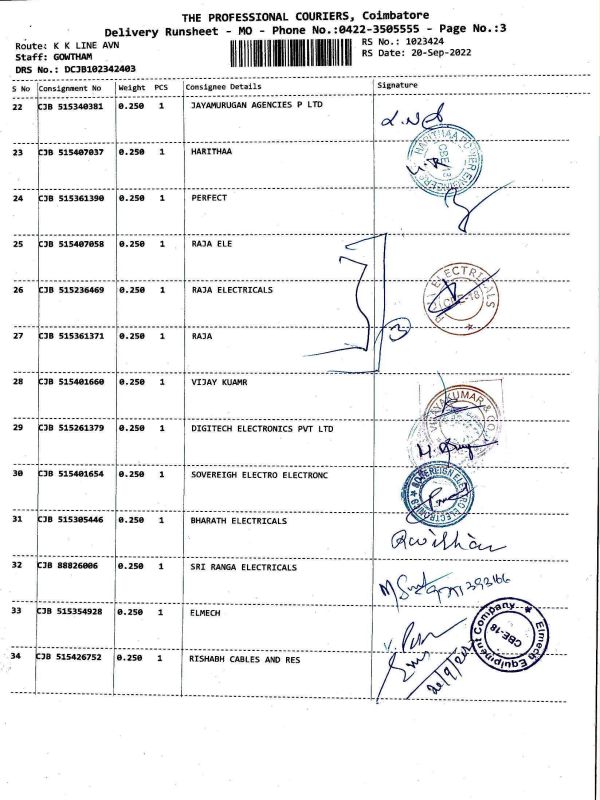 THE PROFESSIONAL COURIERS, Coimbatore
Delivery Runsheet - MO - Phone No.:0422-3505555 - Page No.:3
Route: K K LINE AVN
Staff: GOWTHAM
DRS No.: DCJB102342403
RS No.: 1023424
RS Date: 20-Sep-2022
S No Consignment No Weight PCS Consignee Details Signature
22 CJB 515340381 0.250 1 JAYAMURUGAN AGENCIES P LTD
23 CJB 515407037 0.250 1 HARITHAA
HARITHAA POWER ENGINEERS
CBE-18
24 CJB 515361390 0.250 1 PERFECT
25 CJB 515407058 0.250 1 RAJA ELE
26 CJB 515236469 0.250 1 RAJA ELECTRICALS
ELECTRICALS
27 CJB 515361371 0.250 1 RAJA
3
28 CJB 515401660 0.250 1 VIJAY KUAMR
VIJAYAKUMAR & CO.
29 CJB 515261379 0.250 1 DIGITECH ELECTRONICS PVT LTD
30 CJB 515401654 0.250 1 SOVEREIGH ELECTRO ELECTRONC
SOVEREIGN ELECTRO ELECTRONICS
31 CJB 515305446 0.250 1 BHARATH ELECTRICALS
32 CJB 88826006 0.250 1 SRI RANGA ELECTRICALS
33 CJB 515354928 0.250 1 ELMECH
Elmech Equipment Company
CBE-18
34 CJB 515426752 0.250 1 RISHABH CABLES AND RES